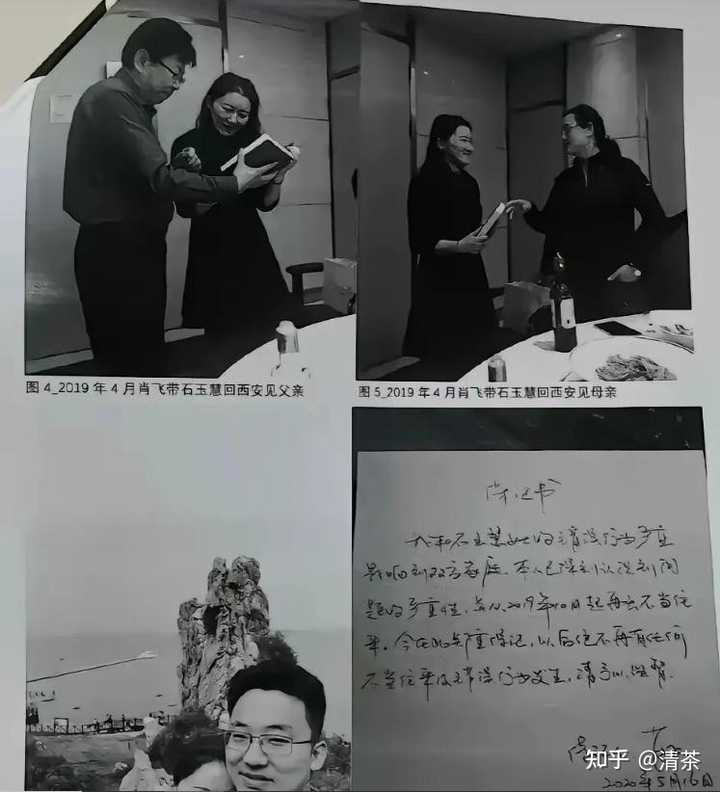 图 4_2019 年 4 月肖飞带石玉慧回西安见父亲
图 5_2019 年 4 月肖飞带石玉慧回西安见母亲
保证书
和石玉慧女士的错误行为严重
影响到双方家庭，本人已深刻认识到问
题的严重性，并从2019年10月起再无不当往
来。今在此郑重保证，以后绝不再有任何
不当往来及错误行为发生，请予以监督。
2020年5月16日
知乎 @清茶